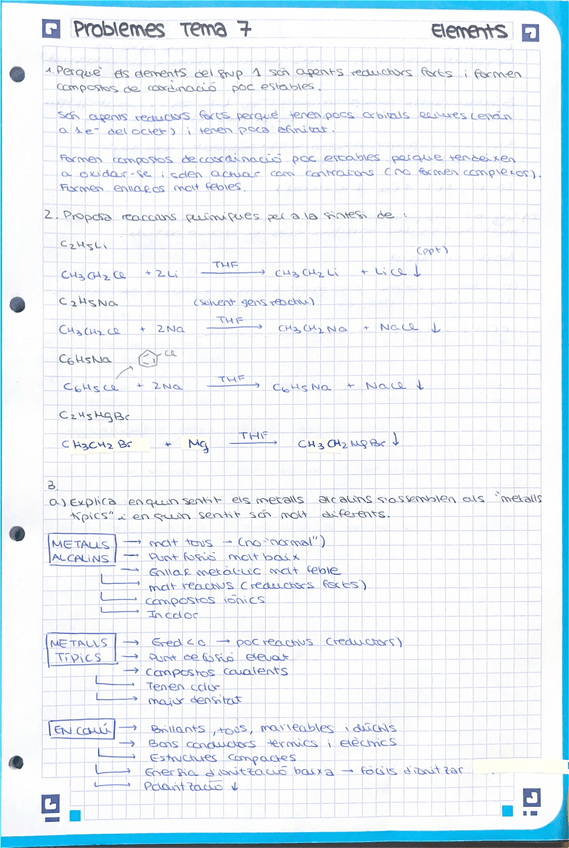 Problemes Tema 7 Elements
1. Perquè els elements del grup 1 són agents reductors forts i formen
compostos de coordinació poc estables.
Són agents reductors forts perquè tenen pocs orbitals
a 1e- del octet) i tenen poca afinitat.
Formen compostos de coordinació poc estables perquè tendeixen
a oxidar-se i solen actuar com contraions (no formen complexos).
Formen enllaços molt febles.
2. Proposa reaccions químiques per a la síntesi de :
C2H5Li
(ppt)
CH3CH2Cl + 2Li THF → CH3CH2Li + LiCl ↓
C2H5Na (solvent gens reactiu)
CH3CH2Cl + 2Na THF → CH3CH2Na + NaCl ↓
C6H5Na Cl
C6H5Cl + 2Na THF → C6H5Na + NaCl ↓
C2H5MgBr
CH3CH2Br + Mg THF → CH3CH2MgBr ↓
3.
a) Explica en quin sentit els metalls alcalins s'assemblen als "metalls
típics" i en quin sentit són molt diferents.
METALLS ALCALINS → molt tous → (no "normal")
→ Punt fusió molt baix
→ Enllaç metàl·lic molt feble
molt reactius (reductors forts)
compostos iònics
Incolor
METALLS TÍPICS → Ered < 0 → poc reactius (reductors)
→ Punt de fusió elevat
→ compostos covalents
Tenen color
major densitat
EN COMÚ → Brillants, tous, mal·leables i dúctils
→ Bons conductors tèrmics i elèctrics
Estructures compactes
Energia d'ionització baixa → fàcils d'ionitzar
Polarització ↓